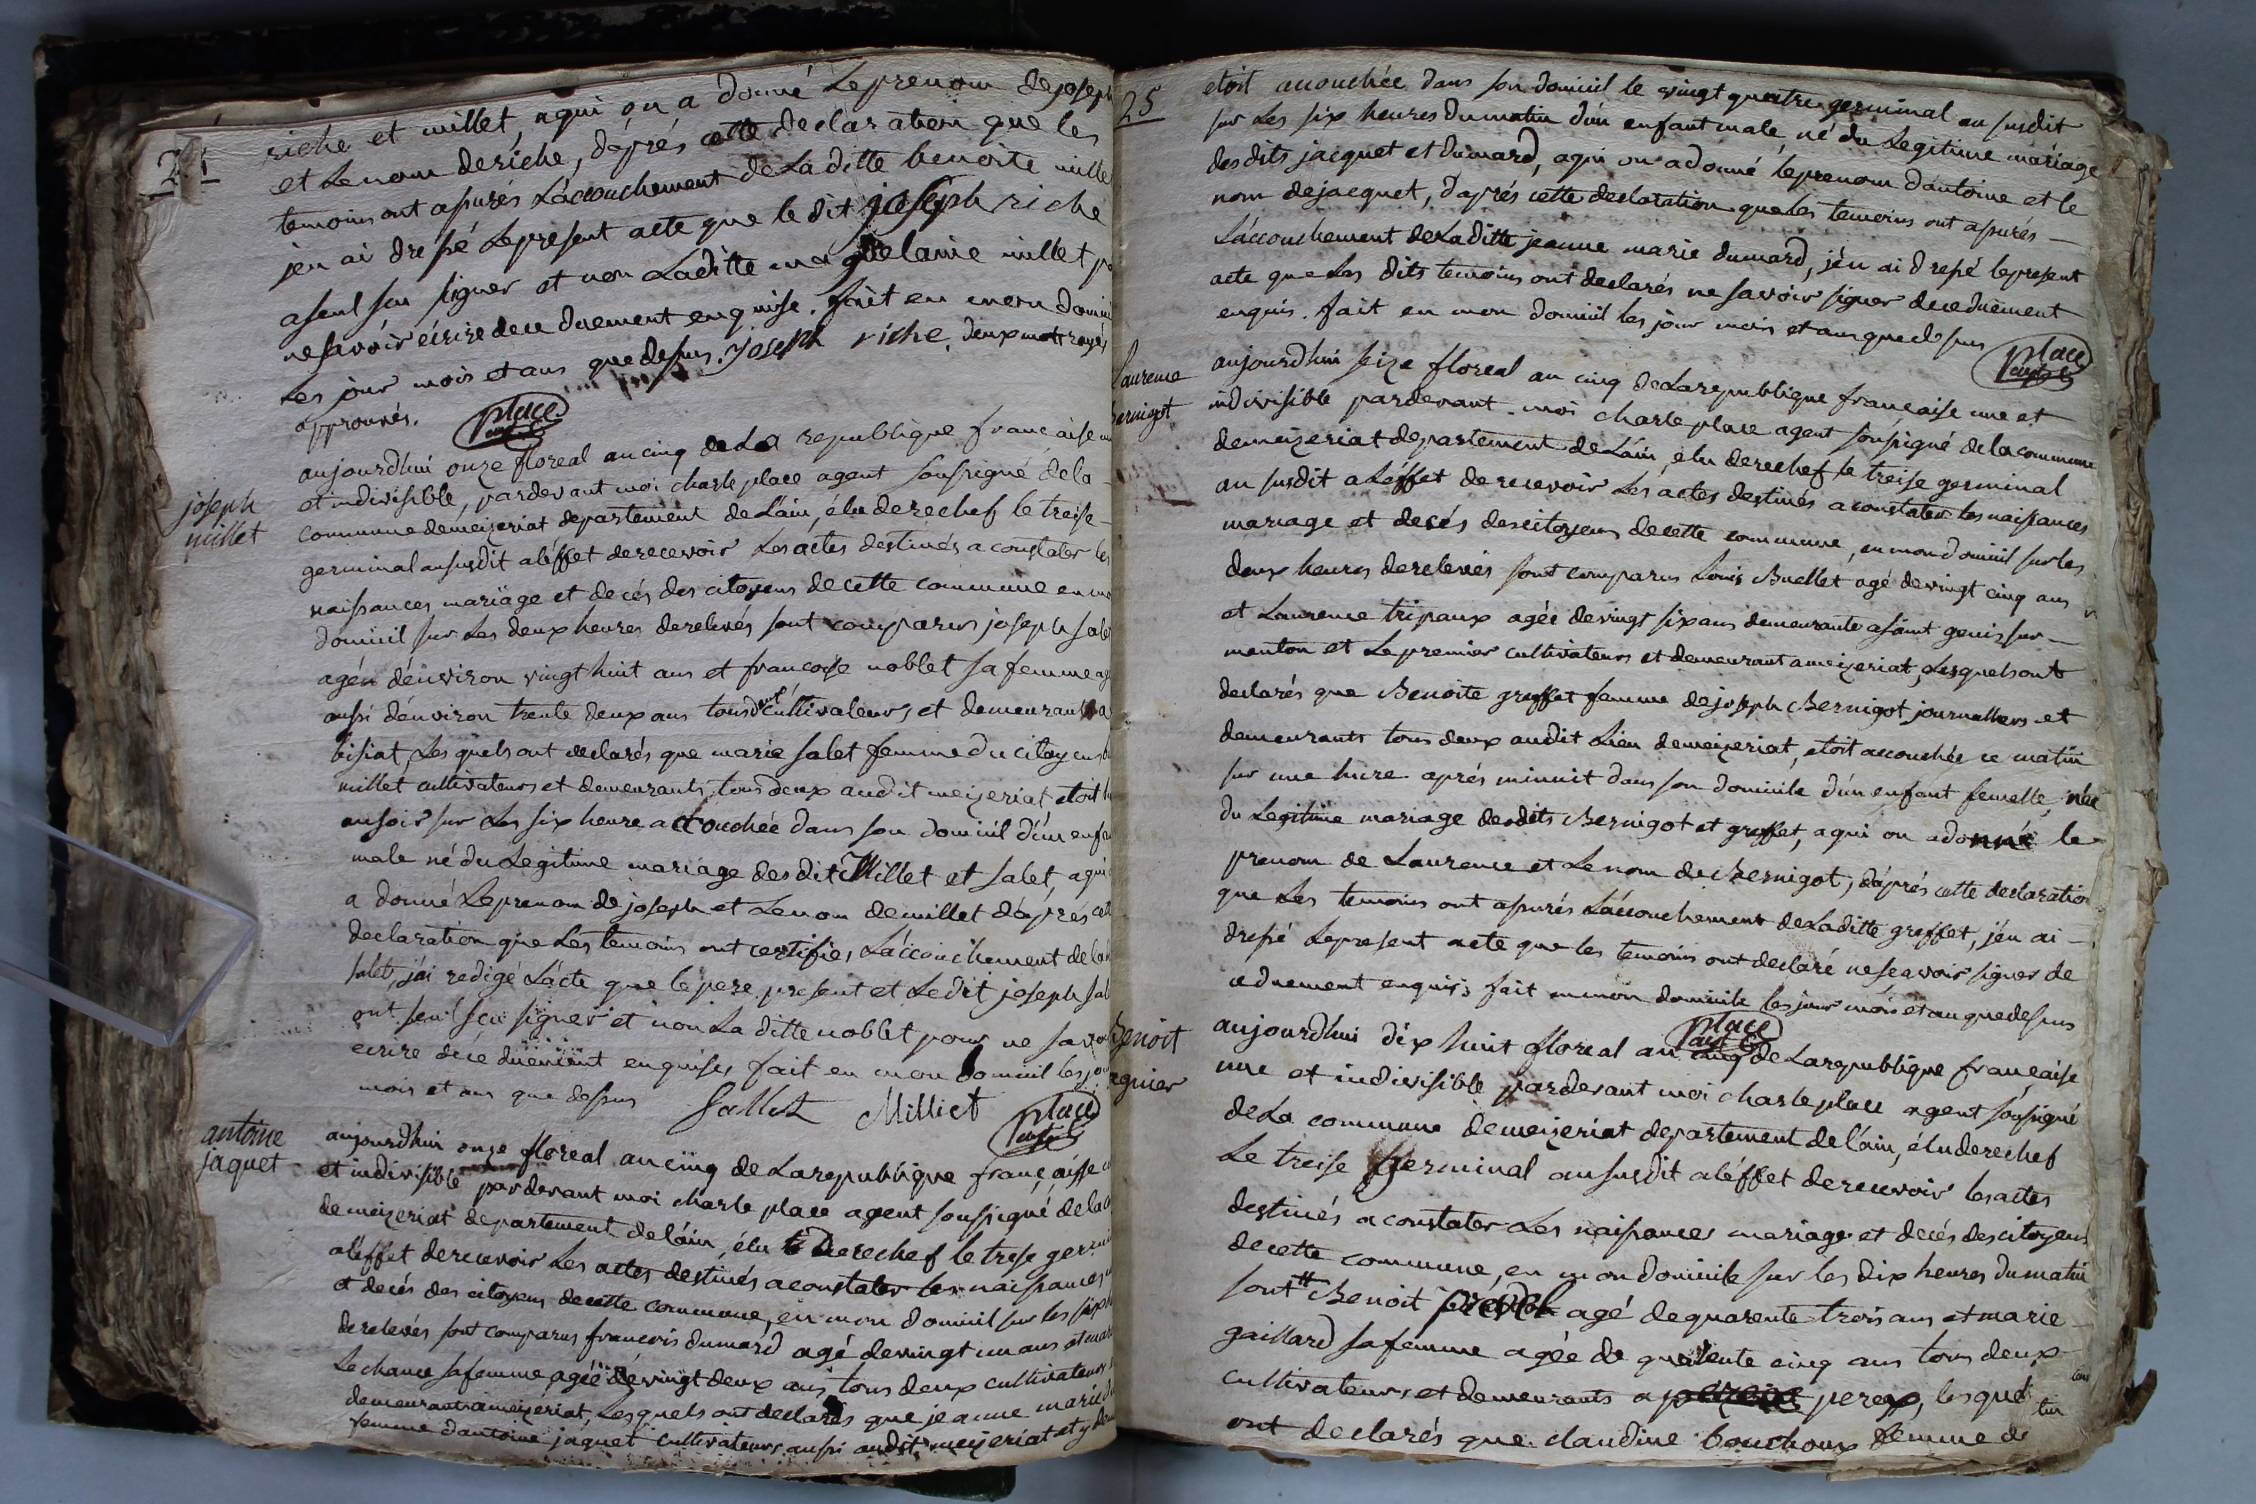 riche et millet, a qui on a donné Le prenom de joseph
et Le nom de riche, d'aprés cette declaration que les
temoins ont apurés L'accouchement de La ditte benoite mille
jen ai drepé Le present acte que le dit joseph riche
a seul seu signer et non Laditte millet
ne savoir écrire de ce duement enquise. fait en mon domi
Les jour mois et ans que desus. joseph riche. deux mots rayés
approuvés.
place
joseph
millet
aujourdhui onze floreal an cinq de La republique francaise
et indivisible, pardevant moi charle place agent soussigné de la
commune demeizeriat departement de L'ain, élu derechef le treise
germinal ansusdit a léffet derecevoir Les actes destinés a constater les
naissances mariage et decés des citoyens de cette commune en
domicil sur Les deux heures derelevés sont comparus joseph sale
agén dénviron vingt huit ans et francoise noblet sa femme ag
aussi dénviron trente deux ans tous deux cultivateurs, et demeurant a
bisiat Les quels ont declarés que marie salet femme du citoyen
millet cultivateurs et demeurants, tous deux audit meizeriat etoit
ausoir sur Les six heure accouchée dans son domicil d'un enfa
male né du Legitime mariage des dit Millet et salet, a qui
a donné Le prenom de joseph et Le nom de millet d'aprés cet
declaration que Les temoins ont certifies L'accouchement de la
salet, j'ai redigé L'acte que le pere present et Ledit joseph sal
ont seul seu signer et non La ditte noblet pour ne savo
ecrire de ce duement enquise, fait en mon domicil les jou
mois et ans que dessus Sallet Milliet place
antoine
jaquet
aujourdhui onze floreal an cinq de La republique françaisse
et indivisible pardevant moi charle place agent soussigné de la
demeizeriat departement de láin, élu derechef le treise germi
a léffet derecevoir Les actes destinés a constater les naissances
et decés des citoyens decette commune, en mon domicil sur les six h
derelevés sont comparus francois dumard agé devingt un ans et mar
Lechance sa femme agéé devingt deux ans tous deux cultivateurs
demeurant a meizériat, Lesquels ont declarés que jeanne marie d
femme d'antoine jaquet cultivateurs aussi audit meizeriat et y dem
25
etoit accouchée dans son domicil le vingt quatre germinal an susdit
sur Les six heures du matin d'un enfant male, né du Legitime mariage
desdits jacquet et dumard, aqui on adonné leprenom d'antoine et le
nom dejacquet, d'aprés cette declaration que Les temoins ont apurés
L'accouchement deLaditte jeanne marie dumard, jén ai drepé lepresent
acte que Les dits temoins ont declarés ne savoir signer dece duement
enquis. fait en mon domicil les jour mois et ans que desus
place
Laurence
bernigot
aujourdhui seize floreal an cinq deLarepublique francaise une et
indivisible pardevant moi charle place agent sousigné dela commune
demeizeriat departement de Láin, élu derechef le treise germinal
an susdit a Léffet derecevoir Les actes destinés aconstater les naissances
mariage et decés descitoyens decette commune, en mon domicil sur les
deux heures derelevés sont comparus Louis Buellet agé devingt cinq ans
et Laurence tripaux agée devingt six ans demeurante asaint genis sur
menton et Lepremier cultivateurs et demeurant ameizeriat, Lesquels ont
declarés que Benoite greffet femme dejoseph Bernigot journaliers et
demeurants tous deux audit Lieu demeizeriat, etoit accouchée ce matin
sur une hure aprés minuit dans son domicile d'un enfant femelle, née
du Legitime mariage desdits Bernigot et greffet, aqui on adonné le
prenom de Laurence et Le nom de Bernigot, d'áprés cette declaration
que Les temoins ont apurés L'accouchement deLaditte greffet, jén ai
drepé Lepresent acte que les temoins ont declaré nesçavoir signer de
ce duement enquis; fait en mon domicile les jour mois et an quedesus
place
Benoit
regnier
aujourdhui dix huit floreal an cinq de Larepublique française
une et indivisible pardevant moi charle place agent sousigné
deLa commune demeizeriat departement de l'ain, élu derechef
Le treise germinal ansusdit a léffet derecevoir les actes
destinés aconstater Les naissances mariage et decés descitoyens
decette commune, en mon domicile sur les dix heures dumatin
sont Benoit agé dequarente trois ans et marie
gaillard safemme agée de quarente cinq ans tous deux
cultivateurs et demeurants a perex, les quels
ont declarés que claudine bouchoux femme de